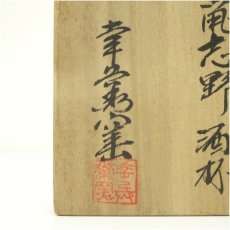 志野 酒杯
幸兵衛窯